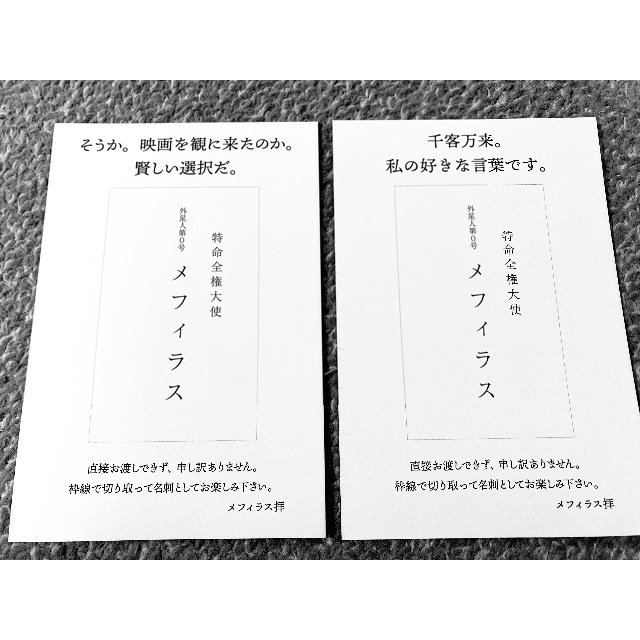 そうか。映画を観に来たのか。
賢しい選択だ。
特命全権大使
外星人第0号
メフィラス
直接お渡しできず、申し訳ありません。
枠線で切り取って名刺としてお楽しみ下さい。
メフィラス拝
千客万来。
私の好きな言葉です。
特命全権大使
外星人第0号
メフィラス
直接お渡しできず、申し訳ありません。
枠線で切り取って名刺としてお楽しみ下さい。
メフィラス拝